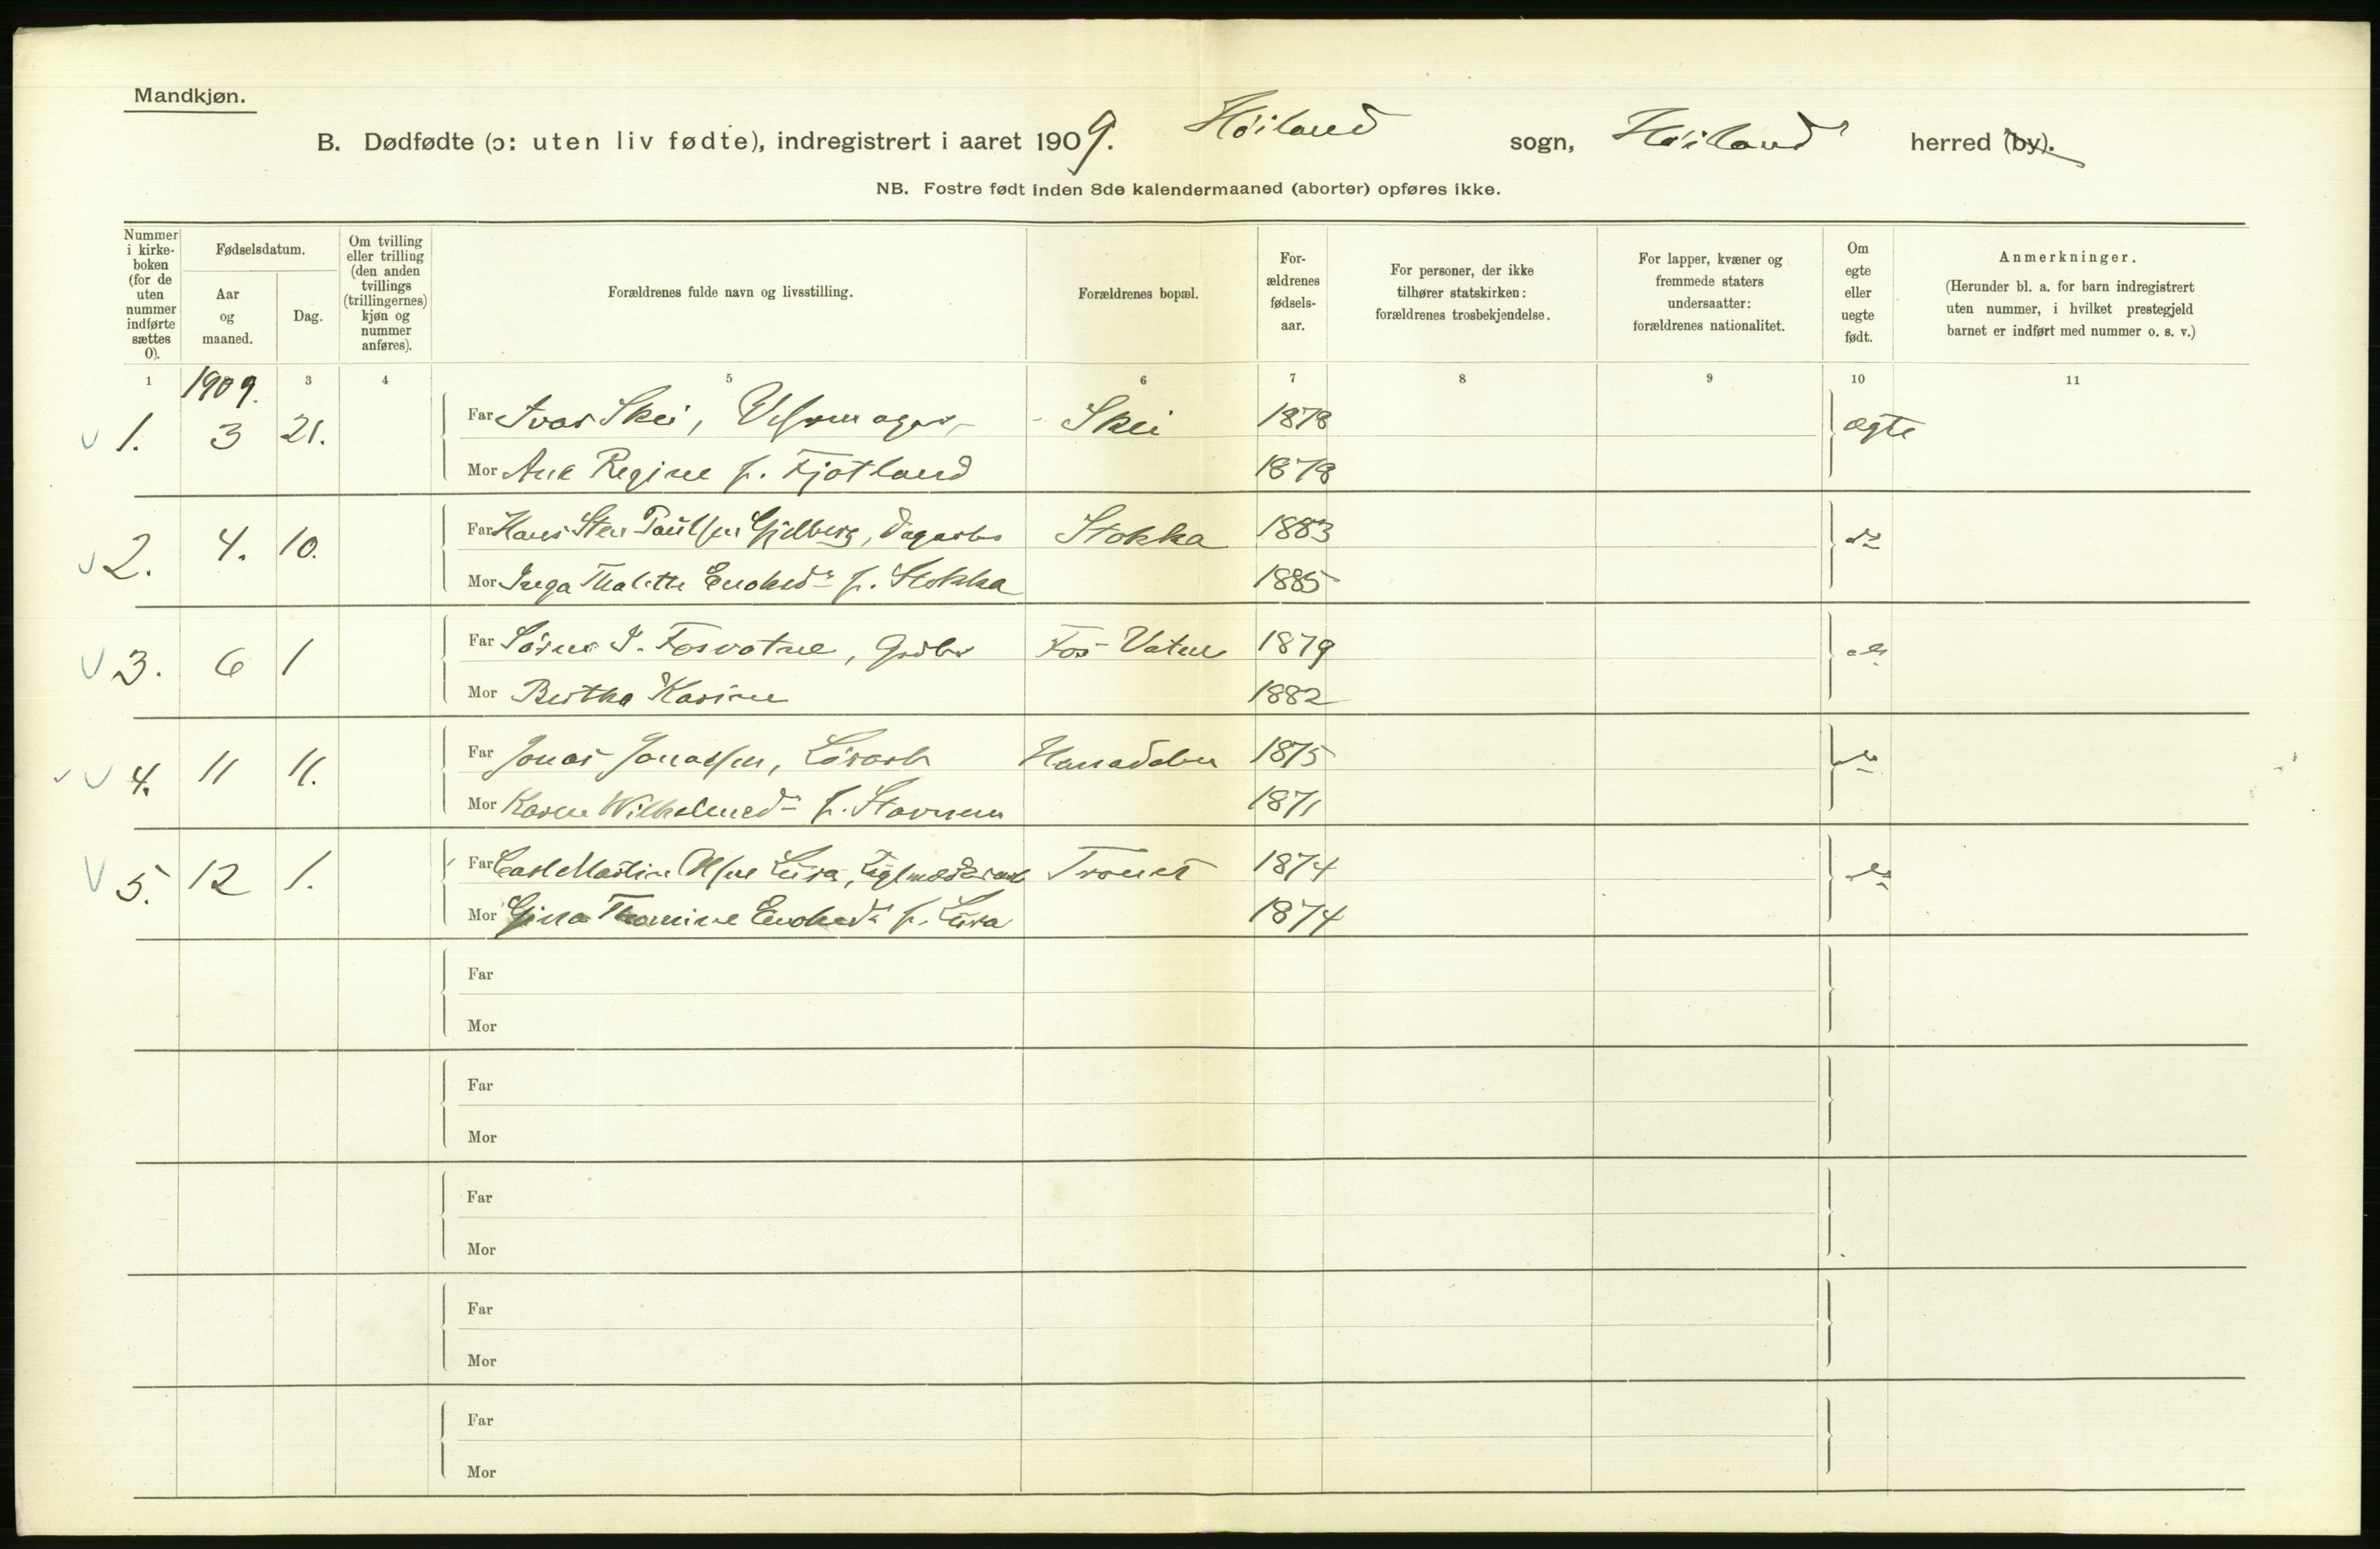 Mandkjøn.
B. Dødfødte (ɔ: uten liv fødte), indregistrert i aaret 1909. Höiland sogn, Höiland herred (by).
NB. Fostre født inden 8de kalendermaaned (aborter) opføres ikke.
Nummer i kirke-boken (for de uten nummer indførte sættes 0).
Fødselsdatum.
Aar og maaned.
Dag.
Om tvilling eller trilling (den anden tvillings (trillingernes) kjøn og nummer anføres).
Forældrenes fulde navn og livsstilling.
Forældrenes bopæl.
For-ældrenes fødsels-aar.
For personer, der ikke tilhører statskirken: forældrenes trosbekjendelse.
For lapper, kvæner og fremmede staters undersaatter: forældrenes nationalitet.
Om egte eller uegte født.
Anmerkninger.
(Herunder bl. a. for barn indregistrert uten nummer, i hvilket prestegjeld barnet er indført med nummer o. s. v.)
1 1909. 3 4 5 6 7 8 9 10 11
1. 3 21. Far Ivar Skei, Skei 1878 ægte
Mor Ane Regine f. Fjotland 1878
2. 4. 10. Far Hans Sten Paulsen Gjelberg, Dagarb Stokka 1883 do
Mor Inga Thalette Enoksd. f. Stokka 1885
3. 6 1 Far Sörine I. Fosvatne, Gårdbr Fos-Vatne 1879 do
Mor Bertha Karine 1882
4. 11 11. Far Jonas Jonassen, Lösarb 1875 do
Mor Karen Wilhelmsd. f. Stavnem 1871
5. 12 1. Far Carl Martin Olsen Lura, Tronet 1874 do
Mor Gina Thomine Enoksd. f. Lura 1874
Far
Mor
Far
Mor
Far
Mor
Far
Mor
Far
Mor